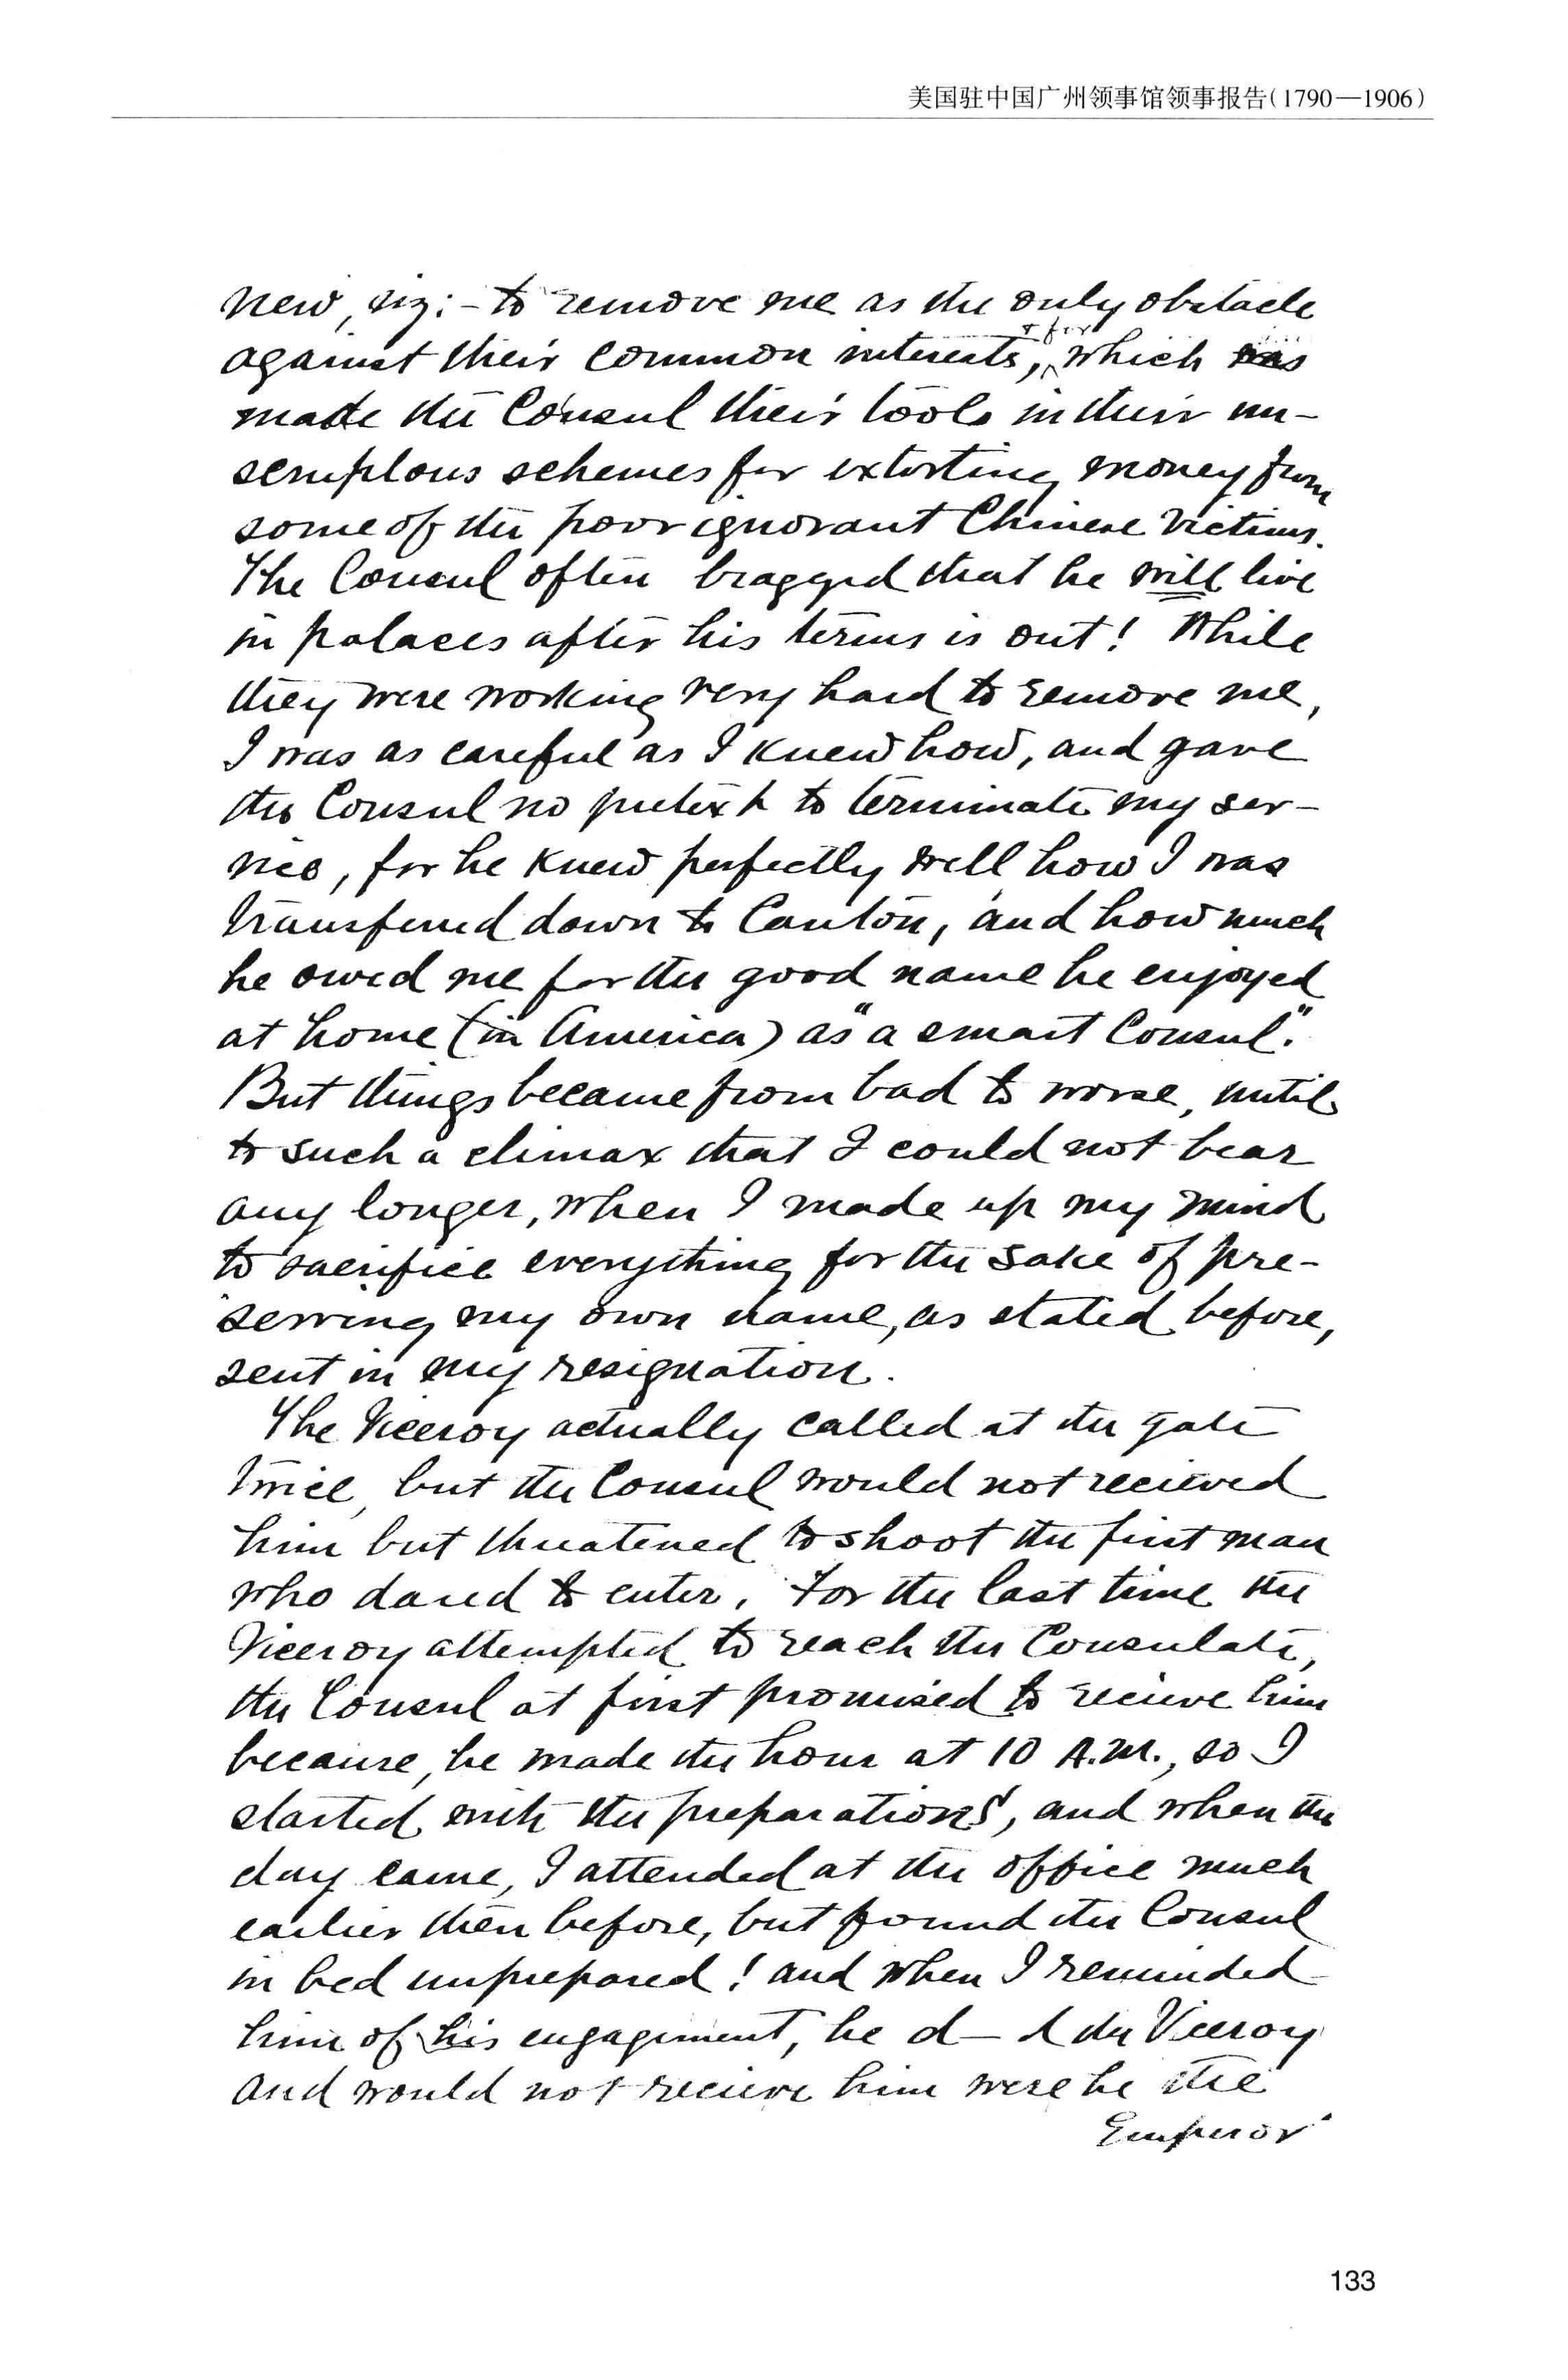 美国驻中国广州领事馆领事报告(1790—1906)
new, viz:- to remove me as the only obstacle
against their common interests, & for which has
made the Consul their tools in their un-
scruplous schemes for extorting money from
some of the poor ignorant Chinese victims.
The Consul often bragged that he will live
in palaces after his terms is out! While
they were working very hard to remove me,
I was as careful as I knew how, and gave
the Consul no pretext to terminate my ser-
vice, for he knew perfectly well how I was
transferred down to Canton, and how much
he owed me for the good name he enjoyed
at home (in America) as "a smart Consul."
But things became from bad to worse, until
to such a climax that I could not bear
any longer, when I made up my mind
to sacrifice everything for the sake of pre-
serving my own name, as stated before,
sent in my resignation.
The Viceroy actually called at the gate
twice, but the Consul would not recieved
him but threatened to shoot the first man
who dared to enter. For the last time the
Viceroy attempted to reach the Consulate,
the Consul at first promised to recieve him
because, he made the hour at 10 A.M., so I
started with the preparations, and when the
day came, I attended at the office much
earlier then before, but found the Consul
in bed unprepared! and when I reminded
him of his engagement, he d—d the Viceroy
and would not recieve him were he the
Emperor
133